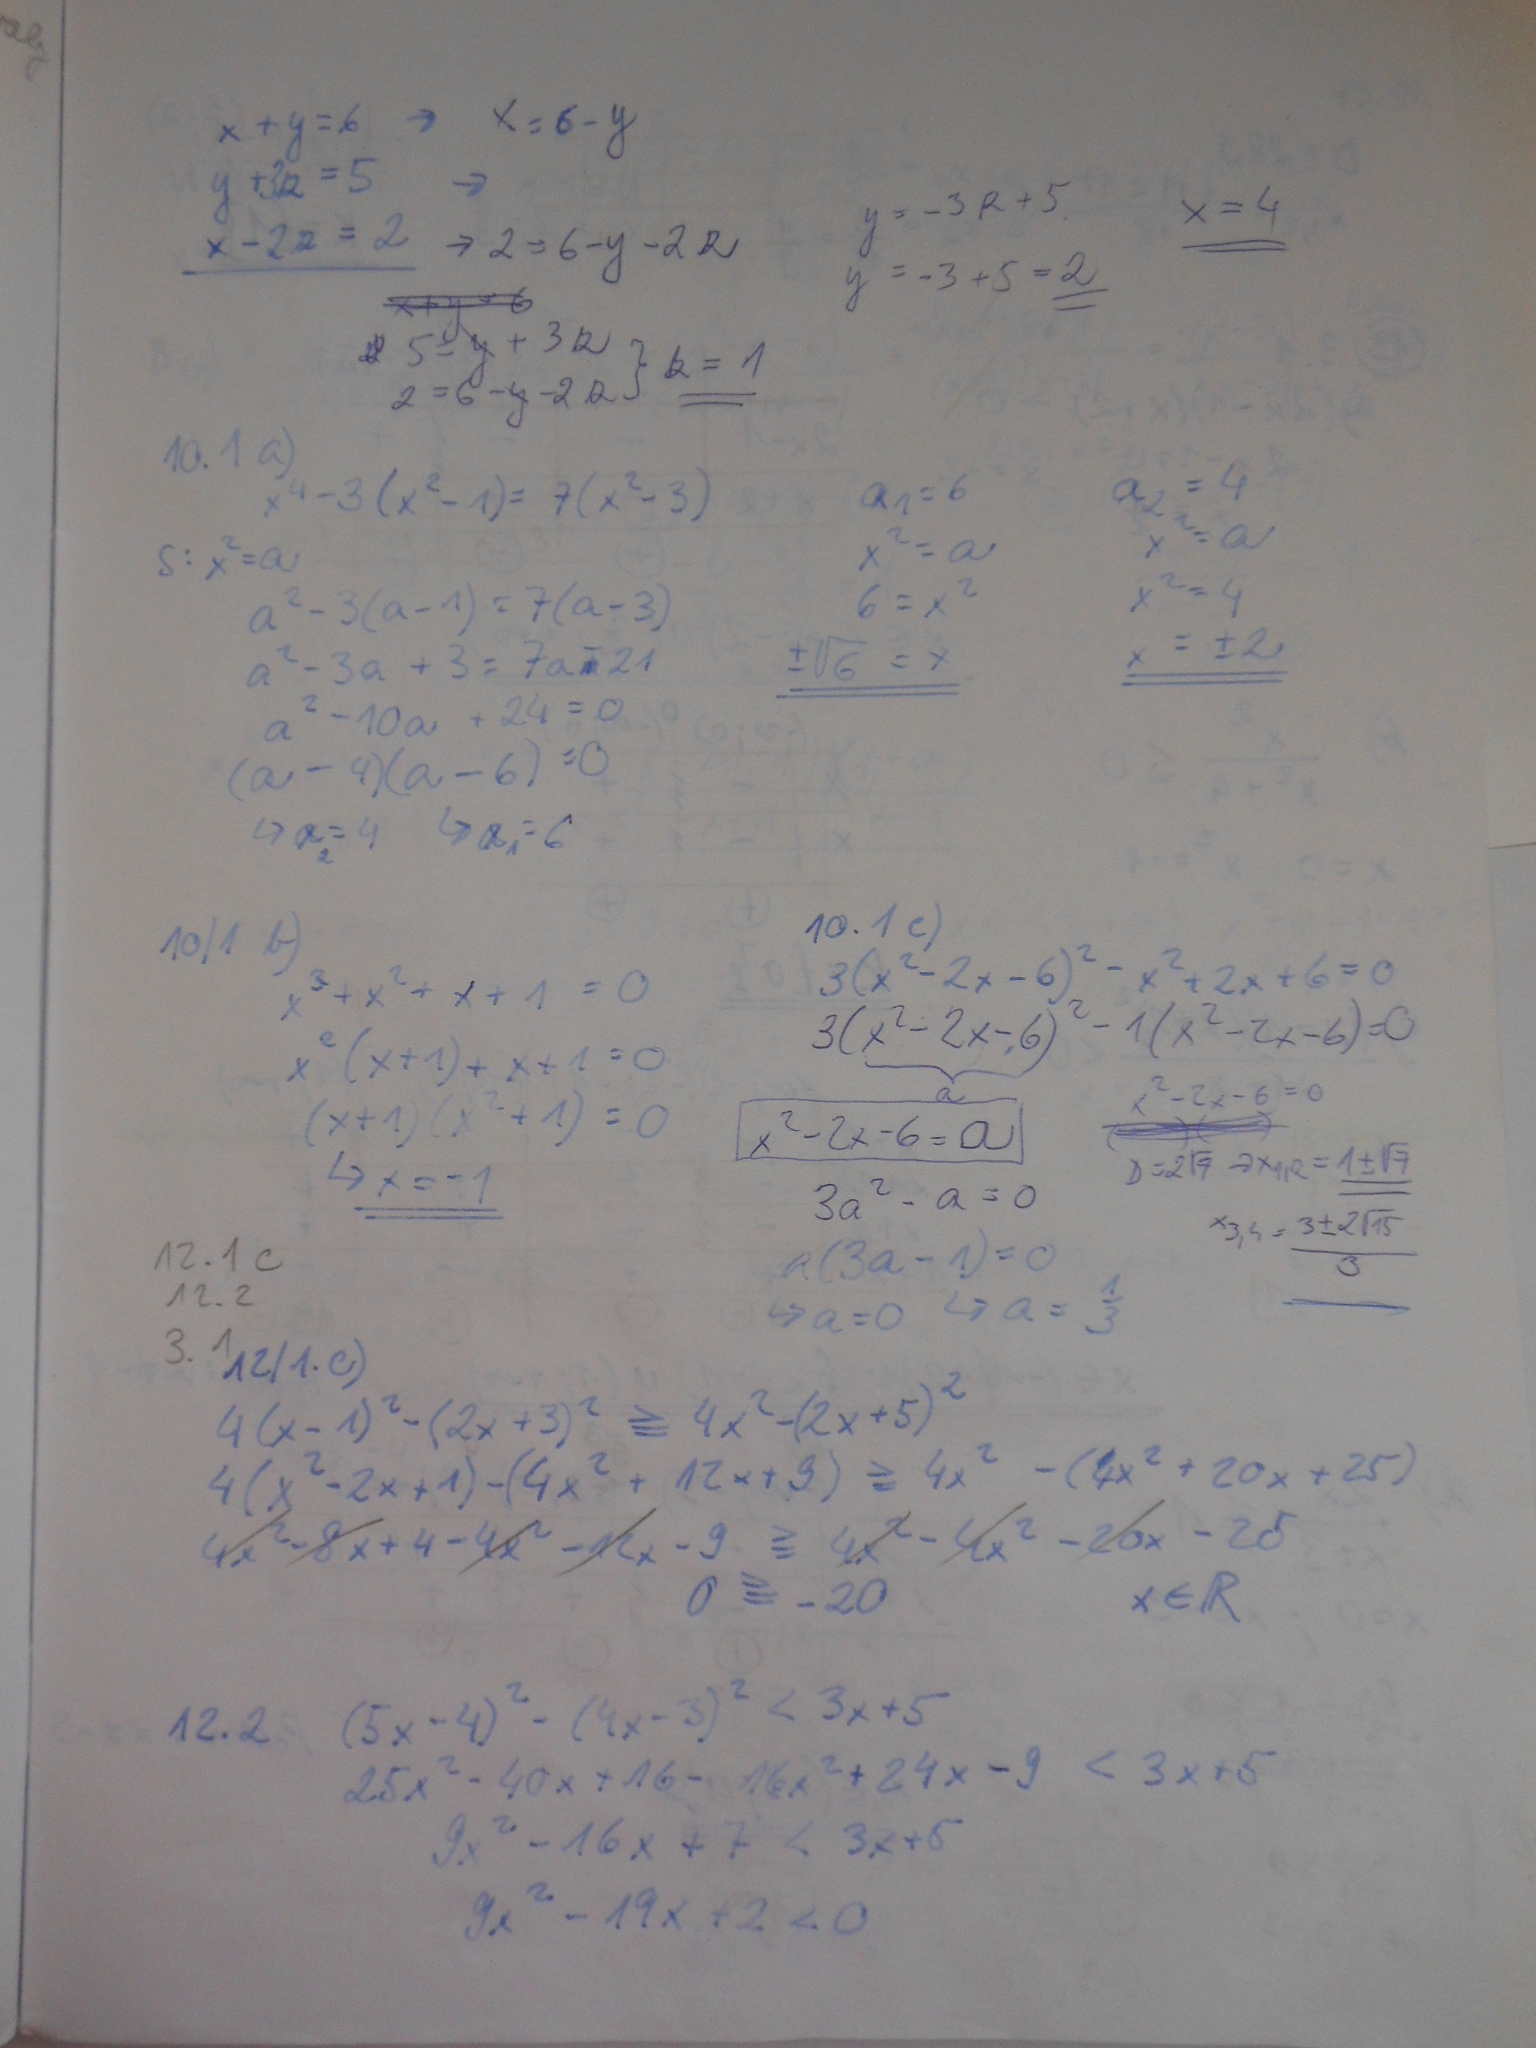 x + y = 6 → x = 6 - y
y + 3z = 5 →
x - 2z = 2 → 2 = 6 - y - 2z
y = -3z + 5
y = -3 + 5 = 2
x = 4
x + y = 6
5 = y + 3z
2 = 6 - y - 2z } z = 1
10.1 a)
x⁴ - 3(x² - 1) = 7(x² - 3)
S: x² = a
a² - 3(a - 1) = 7(a - 3)
a² - 3a + 3 = 7a - 21
a² - 10a + 24 = 0
(a - 4)(a - 6) = 0
↳ a₂ = 4 ↳ a₁ = 6
a₁ = 6
x² = a
6 = x²
±√6 = x
a₂ = 4
x² = a
x² = 4
x = ±2
10/1 b)
x³ + x² + x + 1 = 0
x²(x+1) + x + 1 = 0
(x+1)(x²+1) = 0
↳ x = -1
10.1 c)
3(x² - 2x - 6)² - x² + 2x + 6 = 0
3(x² - 2x - 6)² - 1(x² - 2x - 6) = 0
a
x² - 2x - 6 = a
3a² - a = 0
a(3a - 1) = 0
↳ a = 0 ↳ a = 1/3
x² - 2x - 6 = 0
D = 2√7 → x₁,₂ = 1±√7
x₃,₄ = (3±2√15)/3
12.1 c
12.2
3.1
12/1.c)
4(x - 1)² - (2x + 3)² ≧ 4x² - (2x + 5)²
4(x² - 2x + 1) - (4x² + 12x + 9) ≧ 4x² - (4x² + 20x + 25)
4x² - 8x + 4 - 4x² - 12x - 9 ≧ 4x² - 4x² - 20x - 25
0 ≧ -20 x ∈ ℝ
12.2 (5x - 4)² - (4x - 3)² < 3x + 5
25x² - 40x + 16 - 16x² + 24x - 9 < 3x + 5
9x² - 16x + 7 < 3x + 5
9x² - 19x + 2 < 0